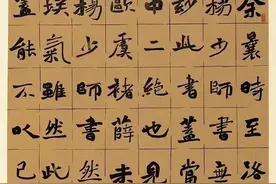 余曩時至洛
楊少師書無
妙此書當
中二絕也見
歐虞褚薛未
楊少師書然
埃氣雖然此
蓋能不以已